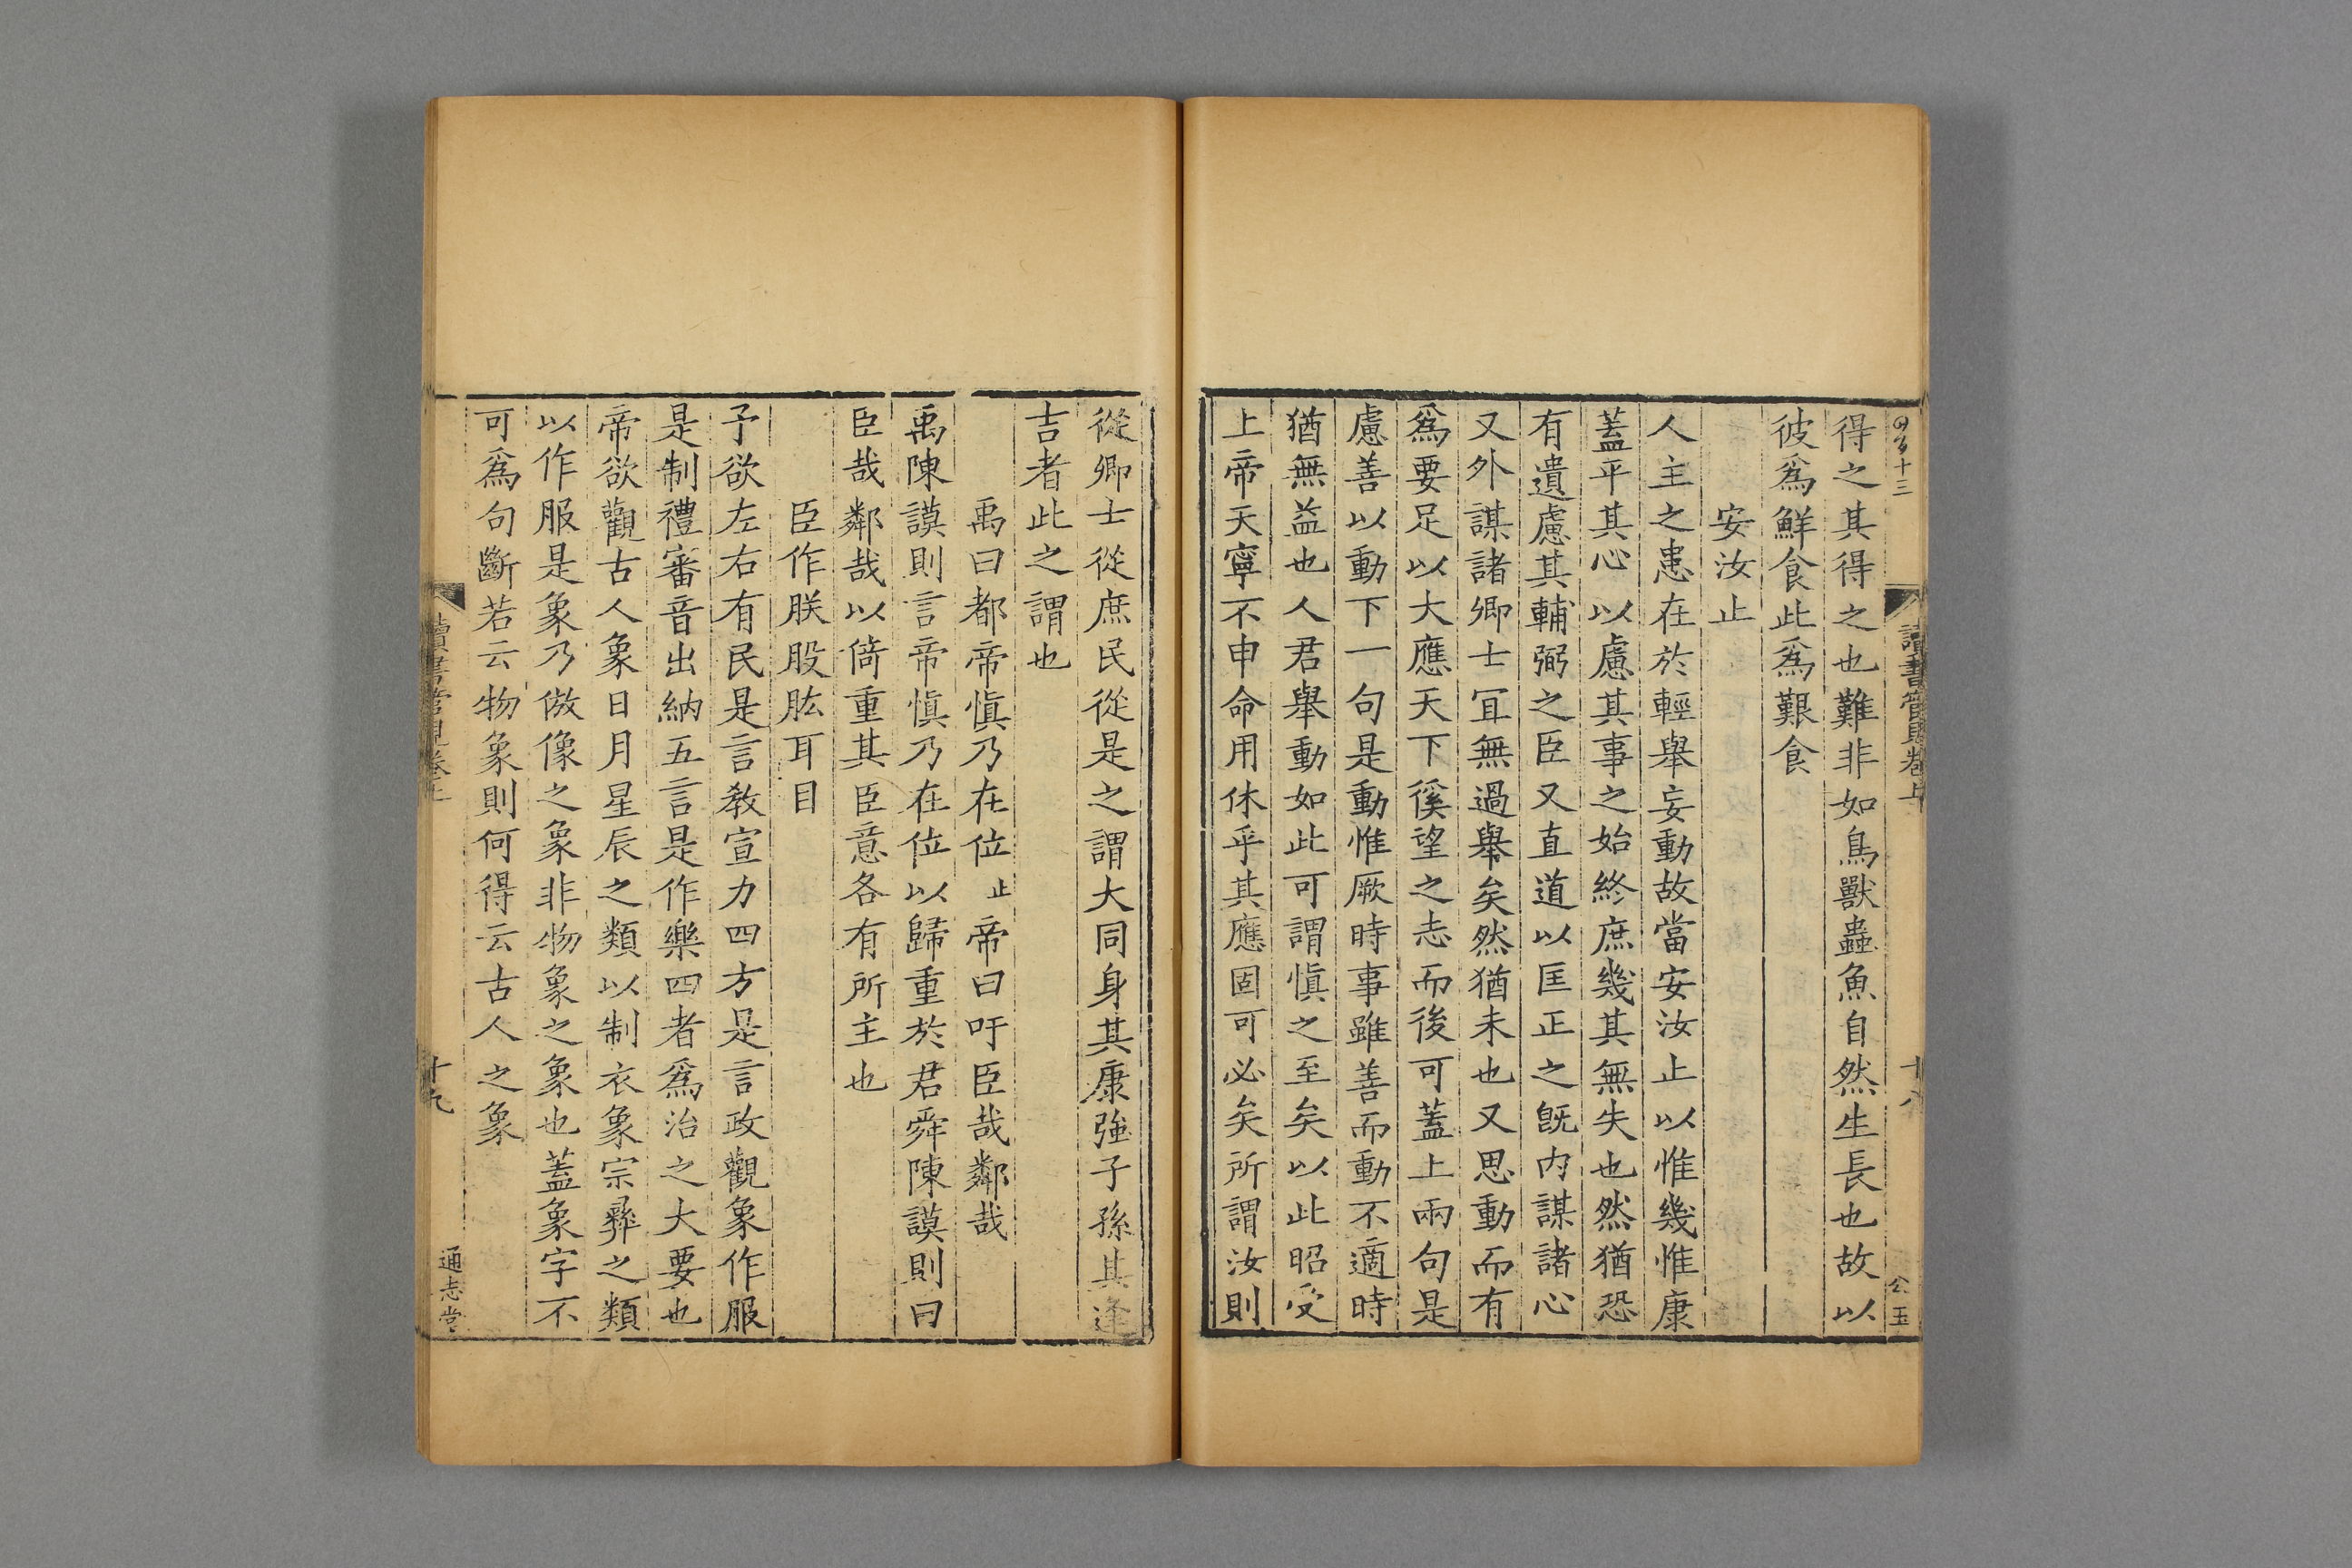 讀書管見卷上
十八
公玉
得之其得之也難非如鳥獸蟲魚自然生長也故以
彼爲鮮食此爲艱食
安汝止
人主之患在於輕舉妄動故當安汝止以惟幾惟康
蓋平其心以慮其事之始終庶幾其無失也然猶恐
有遺慮其輔弼之臣又直道以匡正之旣内謀諸心
又外謀諸卿士冝無過舉矣然猶未也又思動而有
爲要足以大應天下徯望之志而後可蓋上兩句是
慮善以動下一句是動惟厥時事雖善而動不適時
猶無益也人君舉動如此可謂愼之至矣以此昭受
上帝天寧不申命用休乎其應固可必矣所謂汝則
從卿士從庶民從是之謂大同身其康強子孫其逢
吉者此之謂也
禹曰都帝愼乃在位止帝曰吁臣哉鄰哉
禹陳謨則言帝愼乃在位以歸重於君舜陳謨則曰
臣哉鄰哉以倚重其臣意各有所主也
臣作朕股肱耳目
予欲左右有民是言敎宣力四方是言政觀象作服
是制禮審音出納五言是作樂四者爲治之大要也
帝欲觀古人象日月星辰之類以制衣象宗彛之類
以作服是象乃倣像之象非物象之象也蓋象字不
可爲句斷若云物象則何得云古人之象
讀書管見卷上
十九
通志堂